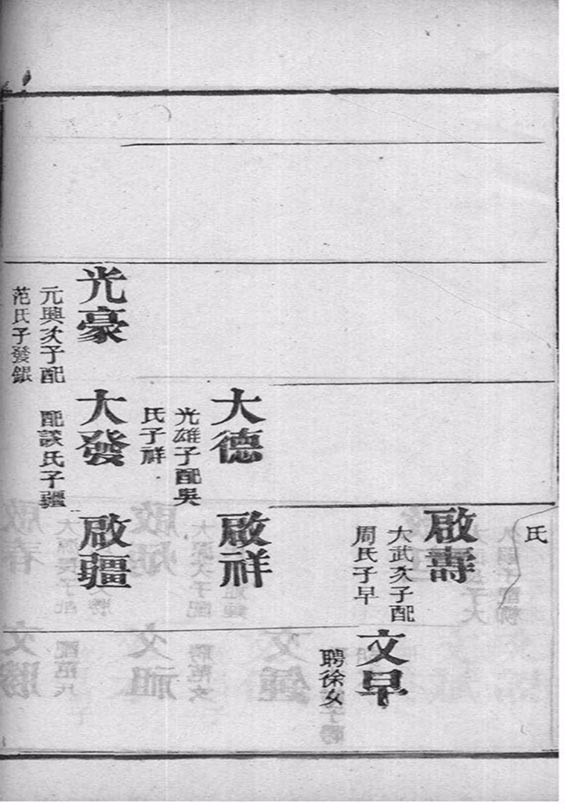 氏
啟壽
大武次子配
周氏子早
文早
聘徐女
大德
光雄子配吳
氏子祥
啟祥
光豪
元興次子配
范氏子發銀
大發
配談氏子疆
啟疆